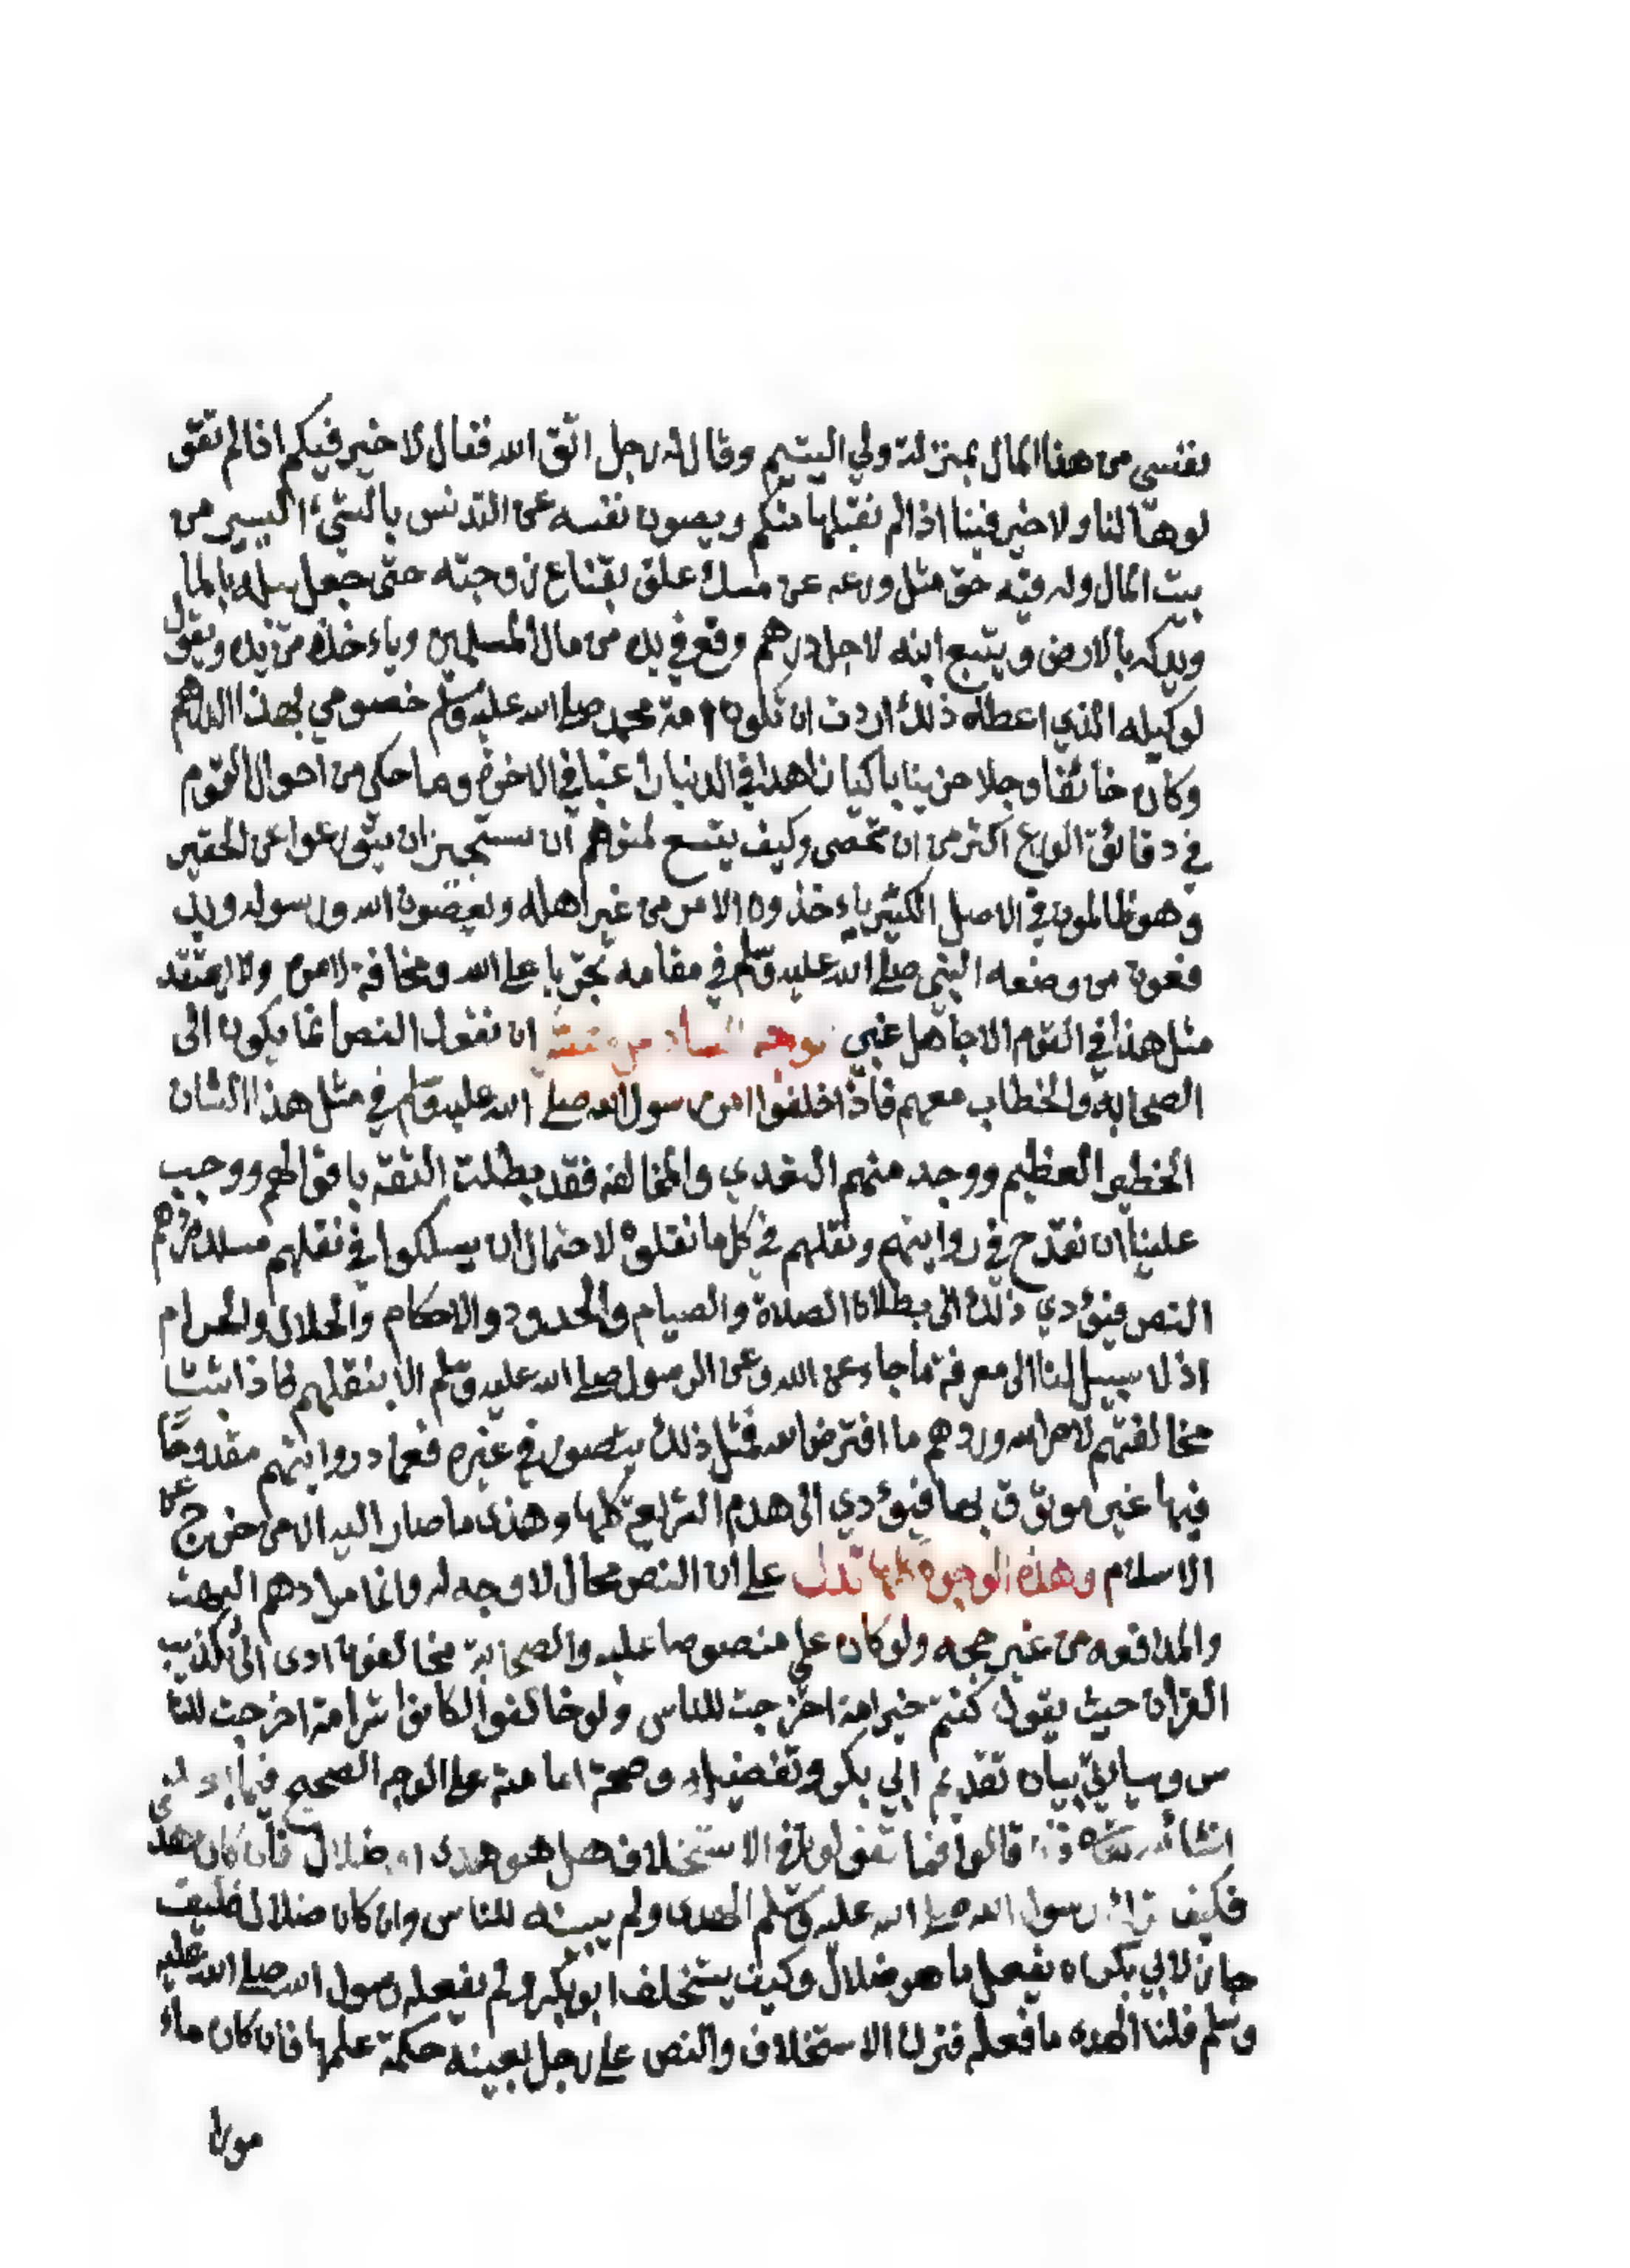 نفسي من هذا المال بمنزلة ولي اليتيم وقال له رجل اتق الله فقال لا خير فيكم اذا لم تقو
لوها لنا ولا خير فينا اذا لم نقبلها منكم ويصون نفسه عن التدنس بالشيء اليسير من
بيت المال وله فيه حق مثل ورعه عن مسك علق بقناع زوجته حتى جعل يبله بالما
ويدلكه بالارض ويتبع ابنه لاجل درهم وقع في يده من مال المسلمين وياءخذه من يده ويقول
لوكيله الذي اعطاه ذلك اردت ان تكون امة محمد صلى الله عليه وسلم خصومي بهذا الدرهم
وكان خائفا وجلا حزينا باكيا زاهدا في الدنيا راغبا في الاخرة وما حكي من احوال القوم
في دقائق الورع اكثر من ان تحصى وكيف يتسع لمتوهم ان يستجيز ان يتورعوا عن الحقير
وهو ظالمون في الاصل الكثير ياءخذون الامر من غير اهله ويعصون الله ورسوله ويد
فعون من وضعه النبي صلى الله عليه وسلم في مقامه تجريا على الله ومخافة لامره ولا يعتقد
مثل هذا في القوم الا جاهل غبي ان نقول النص انما يكون الى
الصحابة والخطاب معهم فاذا اخلفوا امر رسول الله صلى الله عليه وسلم في مثل هذا الشان
الخطير العظيم ووجد منهم التعدي والمخالفه فقد بطلت الثقة باقوالهم ووجب
علينا ان نقدح في روايتهم ونقلهم في كل ما نقلوه لاحتمال ان يسلكوا في نقلهم مسلك
النص فيؤدي ذلك الى بطلان الصلاة والصيام والحدود والاحكام والحلال والحرام
اذ لا سبيل لنا الى معرفة ما جاء عن الله وعن الرسول صلى الله عليه وسلم الا بنقلهم فاذا
مخالفتهم لامر الله وردهم ما افترض الله فمثل ذلك يتصور في غيره فعاد روايتهم مقدوحا
فيها غير موثوق بها فيؤدي الى هدم الشرايع كلها وهذا ما صار اليه الا من خرج عن
الاسلام وهذه الوجوه كلها تدل على ان النص محال لا وجه له وانما مرادهم البهت
والمدافعه من غير حجه ولو كان علي منصوصا عليه والصحابة مخالفوه ادى الى تكذيب
القران حيث يقول كنتم خير امة اخرجت للناس ولو خالفوا لكانوا شر امة اخرجت للنا
س وسياتي بيان تقديم ابي بكر وتفضيله وصحة امامته على الوجه الصحيح فيما
قالوا فما تقولون في الاستخلاف هل هو هدى او ضلال فان كان هدى
فكيف ترك رسول الله صلى الله عليه وسلم الهدى ولم يبينه للناس وان كان ضلالا فكيف
جاز لابي بكر ان يفعل ما هو ضلال وكيف يستخلف ابو بكر ولم يفعله رسول الله صلى الله عليه
وسلم قلنا الهدى ما فعله فترك الاستخلاف والنص على رجل بعينه حكمة علمها فان كان ماء